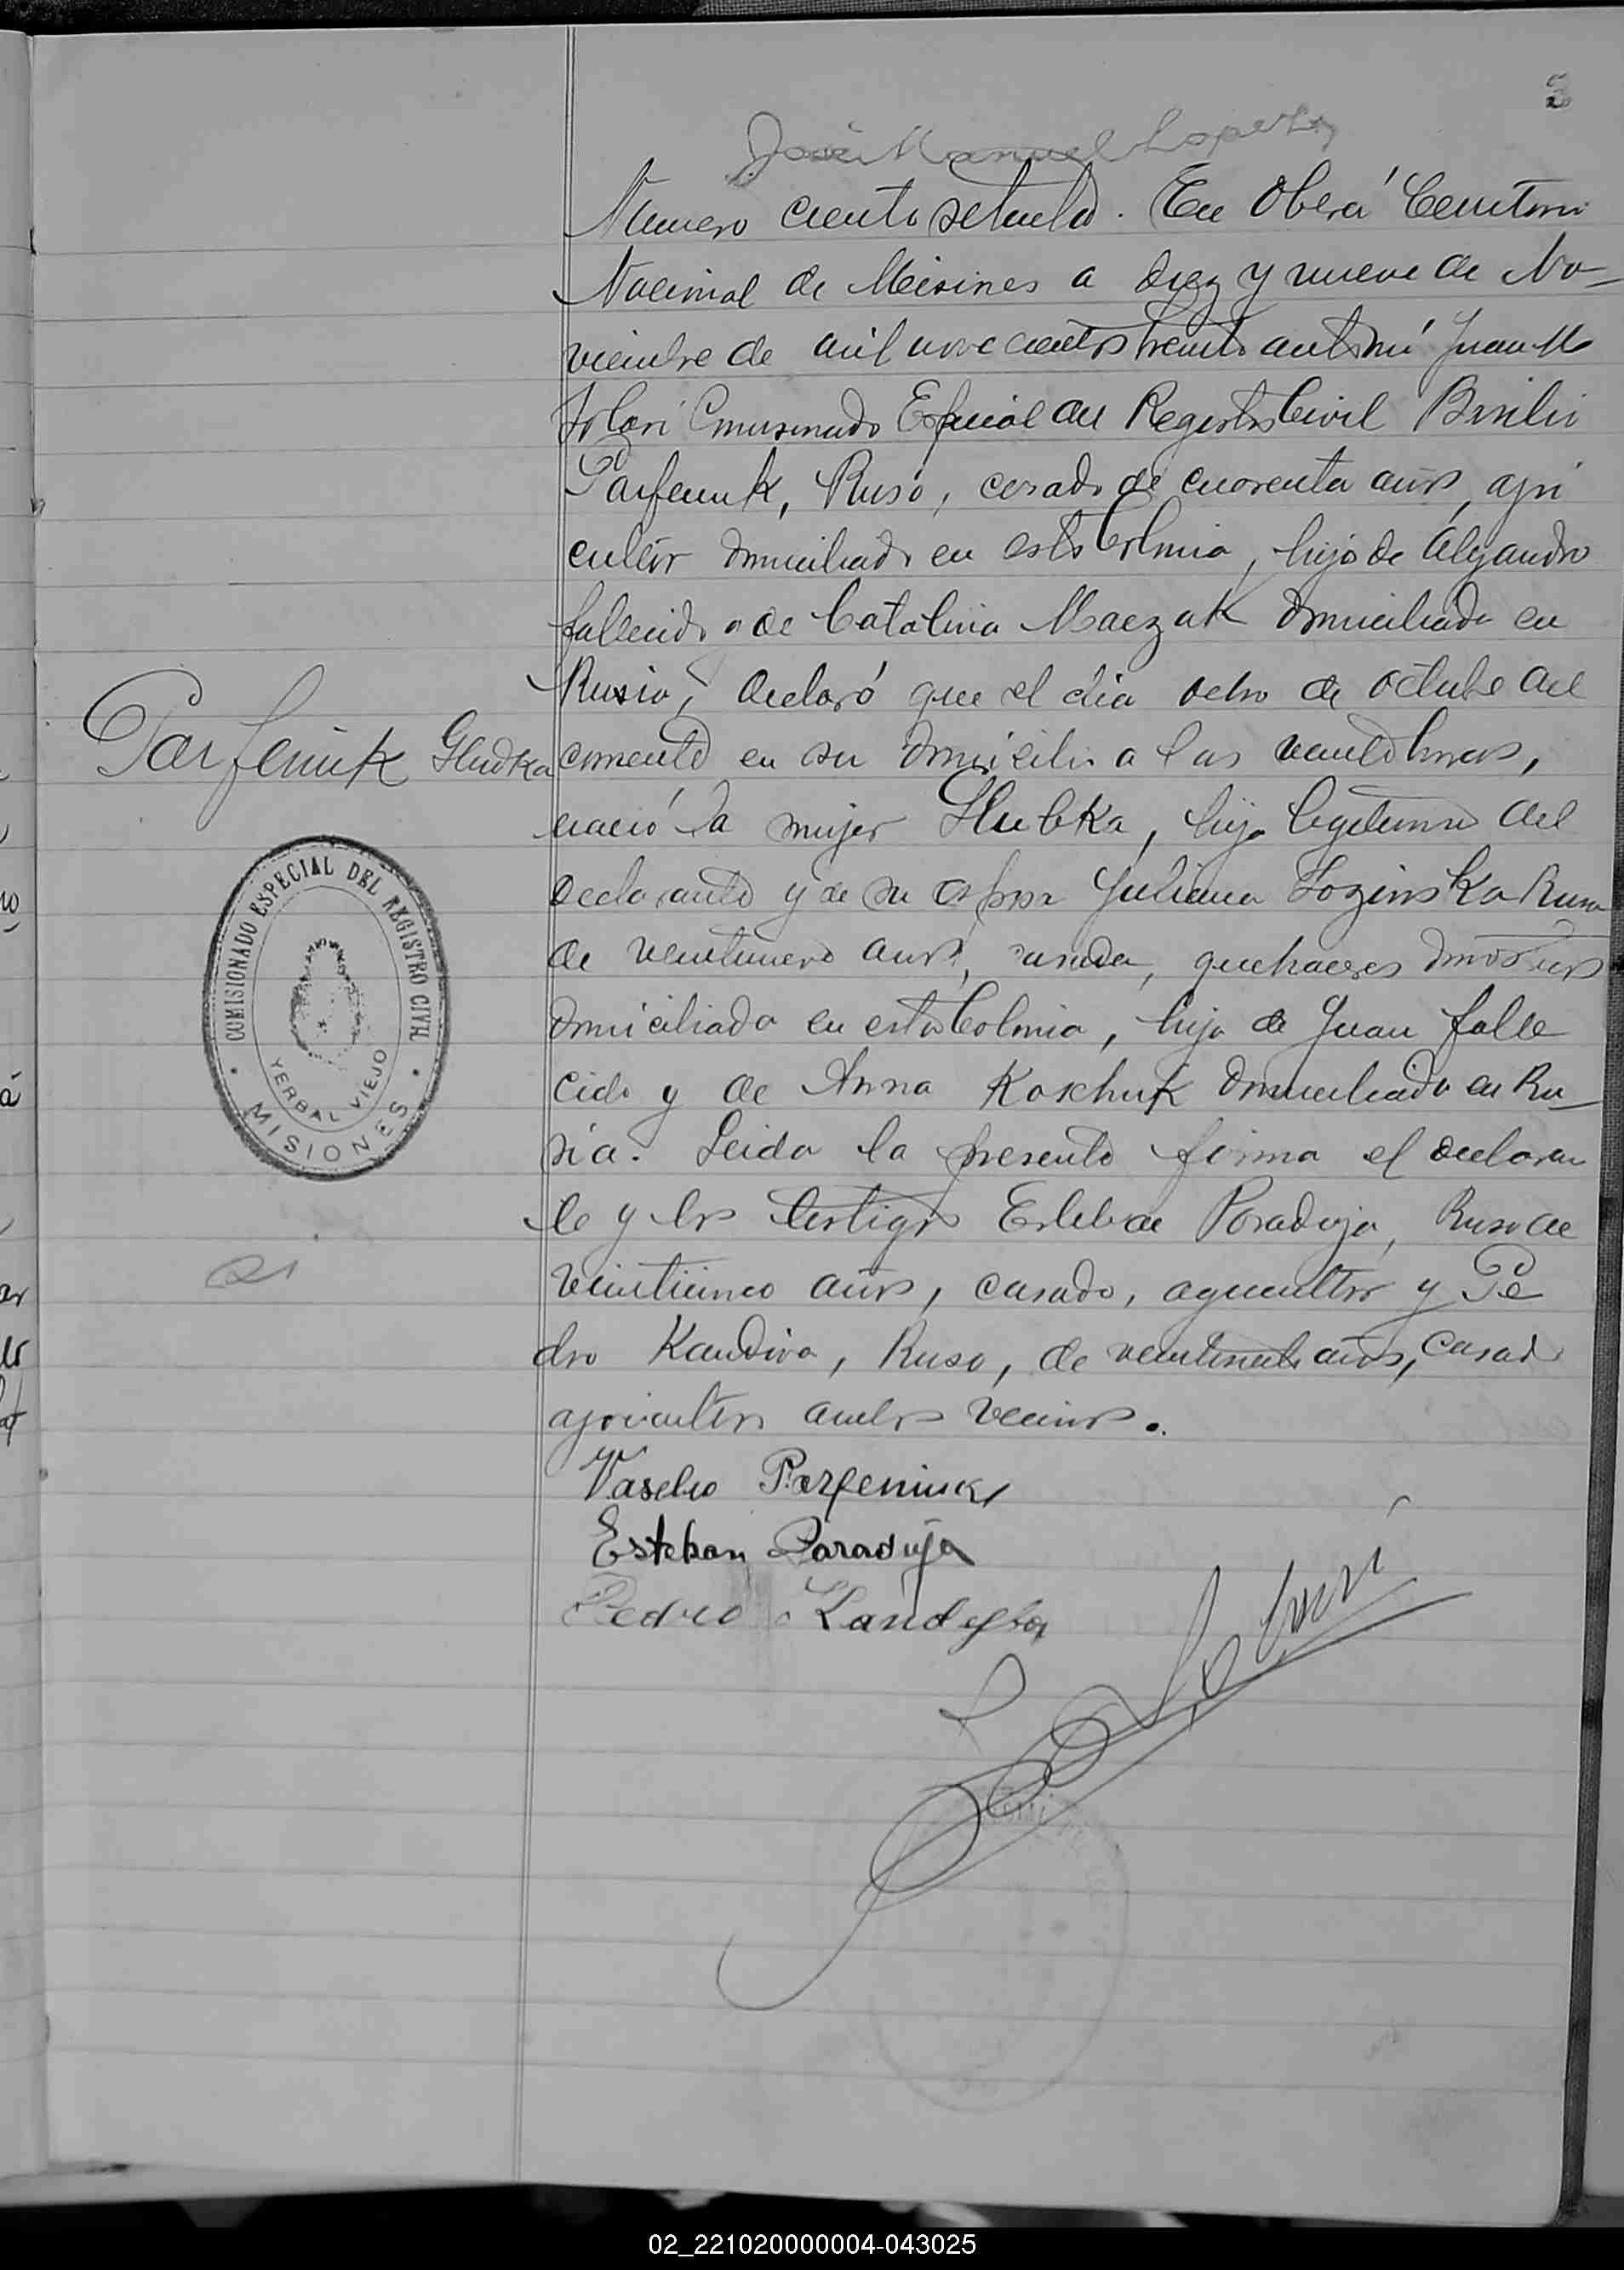 José Manuel Lopez
Numero ciento setenta. En Oberá Territorio
Nacional de Misiones a diez y nueve de No-
viembre de mil novecientos treinta ante mi Juan M
Solari Comisionado Especial del Registro Civil Basilio
Parfeniuk, Ruso, casado de cuarenta años, agri
cultor domiciliado en esta Colonia, hijo de Alejandro
fallecido y de Catalina Maczak domiciliada en
Rusia, declaró que el dia ocho de octubre del
Parfeniuk Hludka
corriente en su domicilio a las veinte horas,
nació la mujer Hlubka, hija legitima del
declarante y de su esposa Juliana Lozinska Rusa
de veintinueve años, casada, quehaceres domesticos
domiciliada en esta Colonia, hija de Juan falle
cido y de Anna Koschuk domiciliada en Ru-
sia. Leida la presente firma el declaran
te y los testigos Esteban Paraduja, Ruso de
veinticinco años, casado, agricultor y Pe
dro Kandiva, Ruso, de años, casado
agricultor ambos vecinos.
Vaselio Parfeniuk
Esteban Paraduja
Pedro
Solari
COMISIONADO ESPECIAL DEL REGISTRO CIVIL
YERBAL VIEJO
MISIONES
02_221020000004-043025